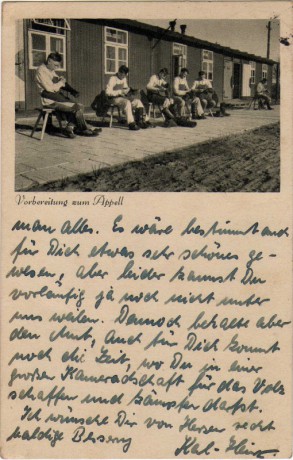 Vorbereitung zum Appell
man alles. Es wäre bestimmt auch
für Dich etwas sehr schönes ge-
wesen, aber leider kannst Du
vorläufig ja noch nicht unter
uns weilen. Dennoch behalte aber
den Mut, auch für Dich kommt
noch die Zeit, wo Du in einer
großen Kameradschaft für das Volk
schaffen und kämpfen darfst.
Ich wünsche Dir von Herzen recht
baldige Besserung
Karl-Heinz